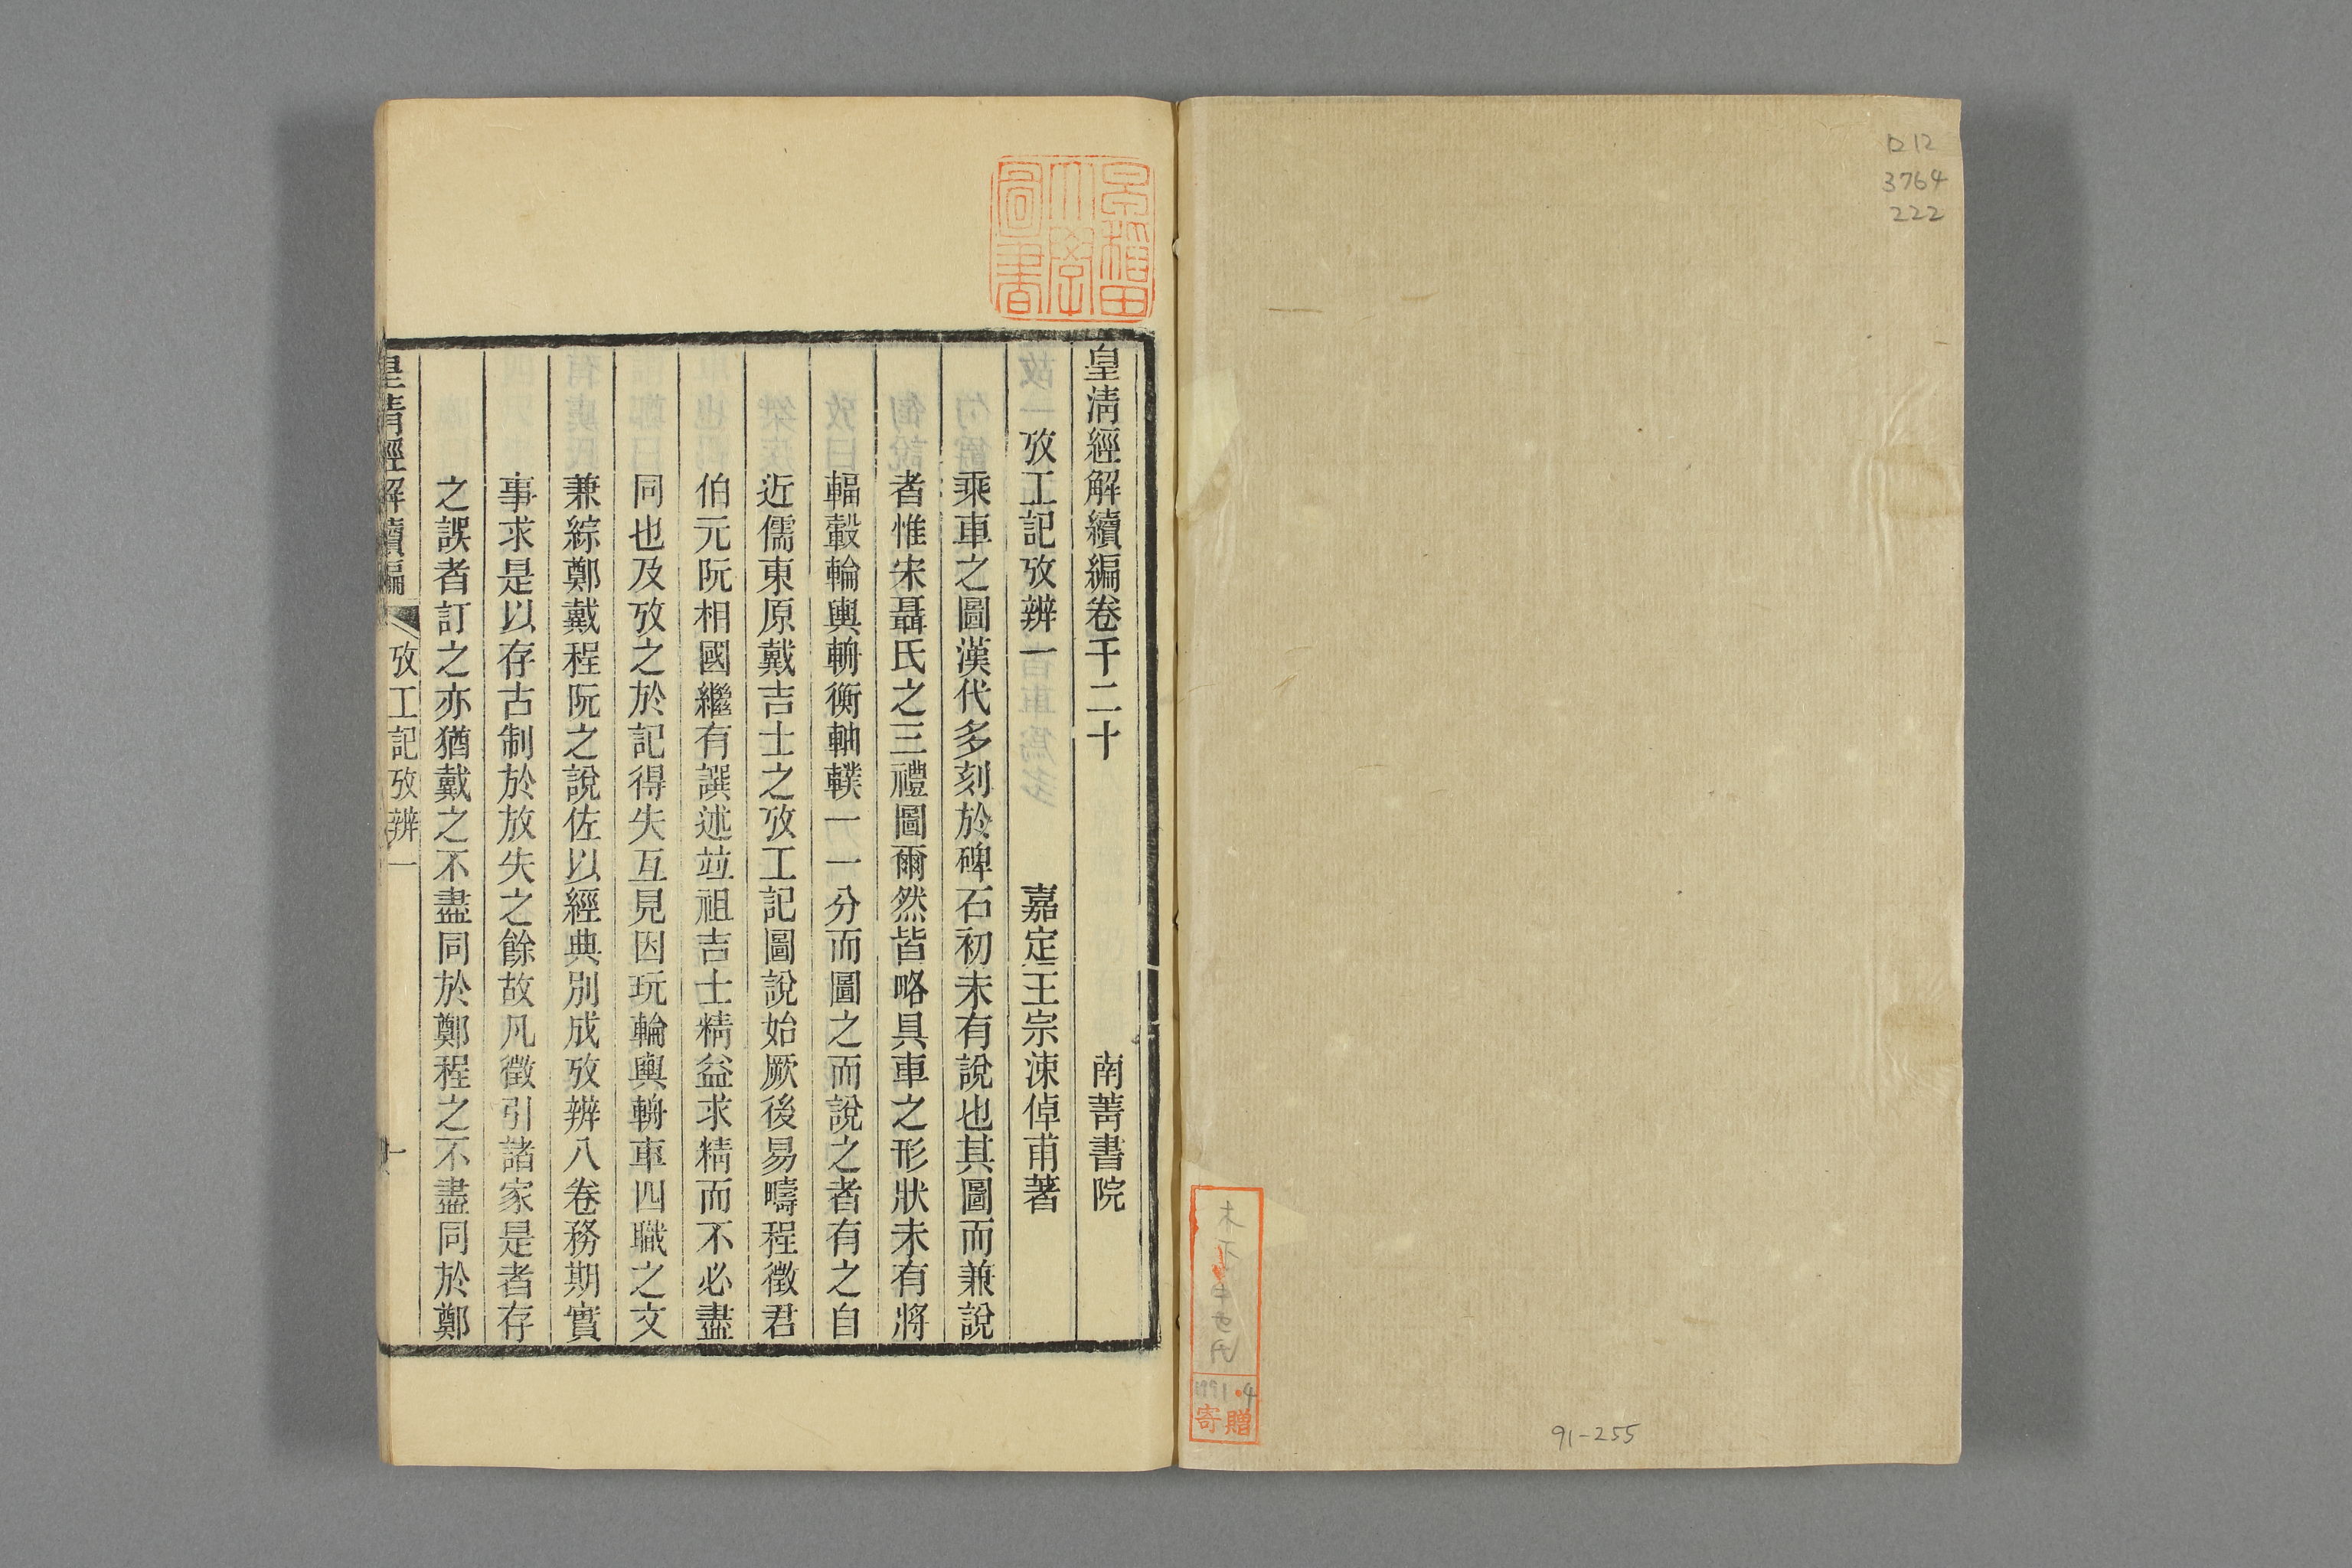 ロ12
3764
222
寄贈
91-255
早稲田
大學
圖書
皇清經解續編卷千二十 南菁書院
攷工記攷辨一 嘉定王宗涑倬甫著
乘車之圖漢代多刻於碑石初未有說也其圖而兼說
者惟宋聶氏之三禮圖爾然皆略具車之形狀未有將
輻轂輪輿輈衡軸轐一一分而圖之而說之者有之自
近儒東原戴吉士之攷工記圖說始厥後易疇程徵君
伯元阮相國繼有譔述竝祖吉士精益求精而不必盡
同也及攷之於記得失互見因玩輪輿輈車四職之文
兼綜鄭戴程阮之說佐以經典別成攷辨八卷務期實
事求是以存古制於放失之餘故凡徵引諸家是者存
之誤者訂之亦猶戴之不盡同於鄭程之不盡同於鄭
皇清經解續編 攷工記攷辨一 一